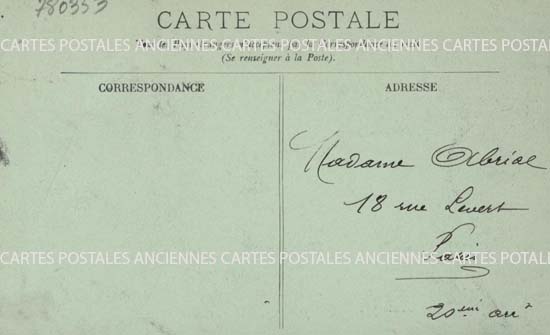 780353
CARTE POSTALE
(Se renseigner à la Poste).
CORRESPONDANCE
ADRESSE
Madame Abrial
18 rue Levert
Paris
20eme arrt
CARTES POSTALES ANCIENNES CARTES POSTALES ANCIENNES CARTES POSTALES ANCIENNES
CARTES POSTALES ANCIENNES CARTES POSTALES ANCIENNES CARTES POSTALES ANCIENNES